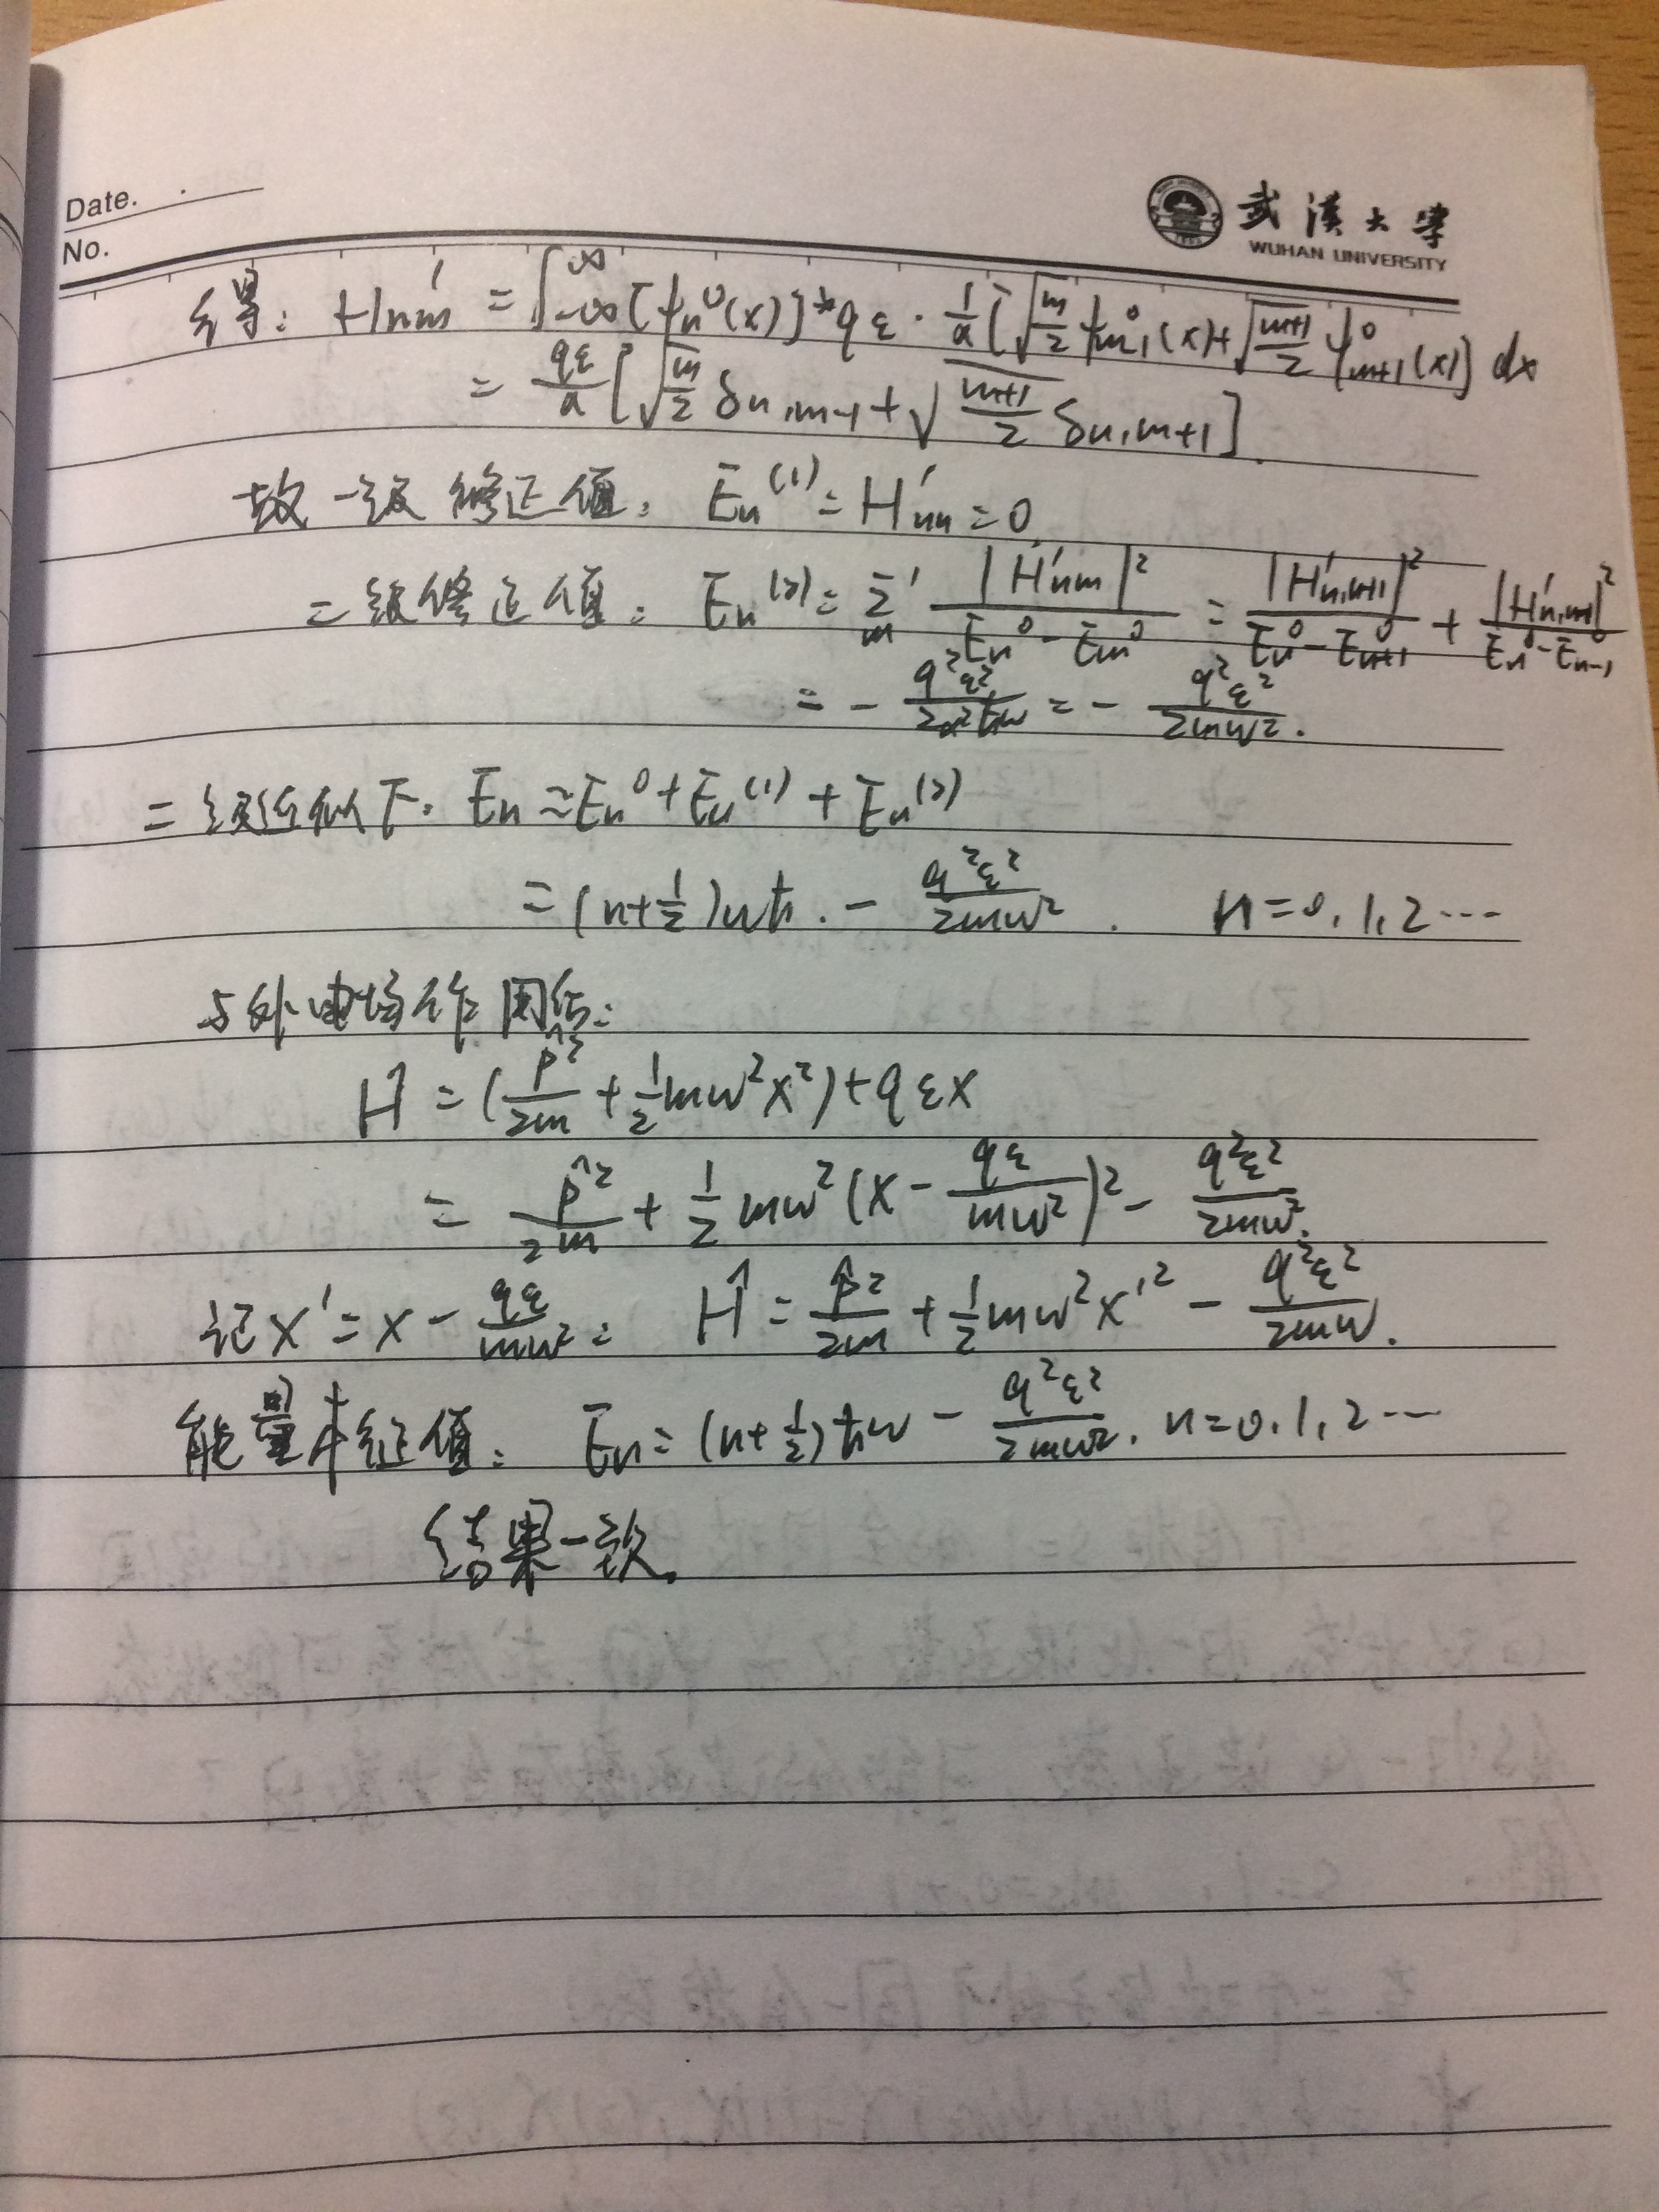 Date.
No.
武漢大學
WUHAN UNIVERSITY
得: H'nm = ∫_{-∞}^{∞} [ψn⁰(x)]* qε · 1/α [√(m/2) ψ⁰m-1(x) + √((m+1)/2) ψ⁰m+1(x)] dx
= qε/α [√(m/2) δn,m-1 + √((m+1)/2) δn,m+1].
故一级修正值: En^(1) = H'nn = 0
二级修正值: En^(2) = Σ'_m |H'nm|²/(En⁰ - Em⁰) = |H'n,n+1|²/(En⁰ - E⁰n+1) + |H'n,n-1|²/(En⁰ - E⁰n-1)
= - q²ε²/(2α²ħω) = - q²ε²/(2mω²).
二级近似下. En ≈ En⁰ + En^(1) + En^(2)
= (n+1/2)ωħ. - q²ε²/(2mω²). n=0,1,2…
与外电场作用后:
Ĥ = (p̂²/2m + 1/2 mω²x²) + qεx
= p̂²/2m + 1/2 mω²(x - qε/(mω²))² - q²ε²/(2mω²).
记x' = x - qε/(mω²): Ĥ = p̂²/2m + 1/2 mω²x'² - q²ε²/(2mω).
能量本征值: En = (n+1/2)ħω - q²ε²/(2mω²). n=0,1,2…
结果一致.